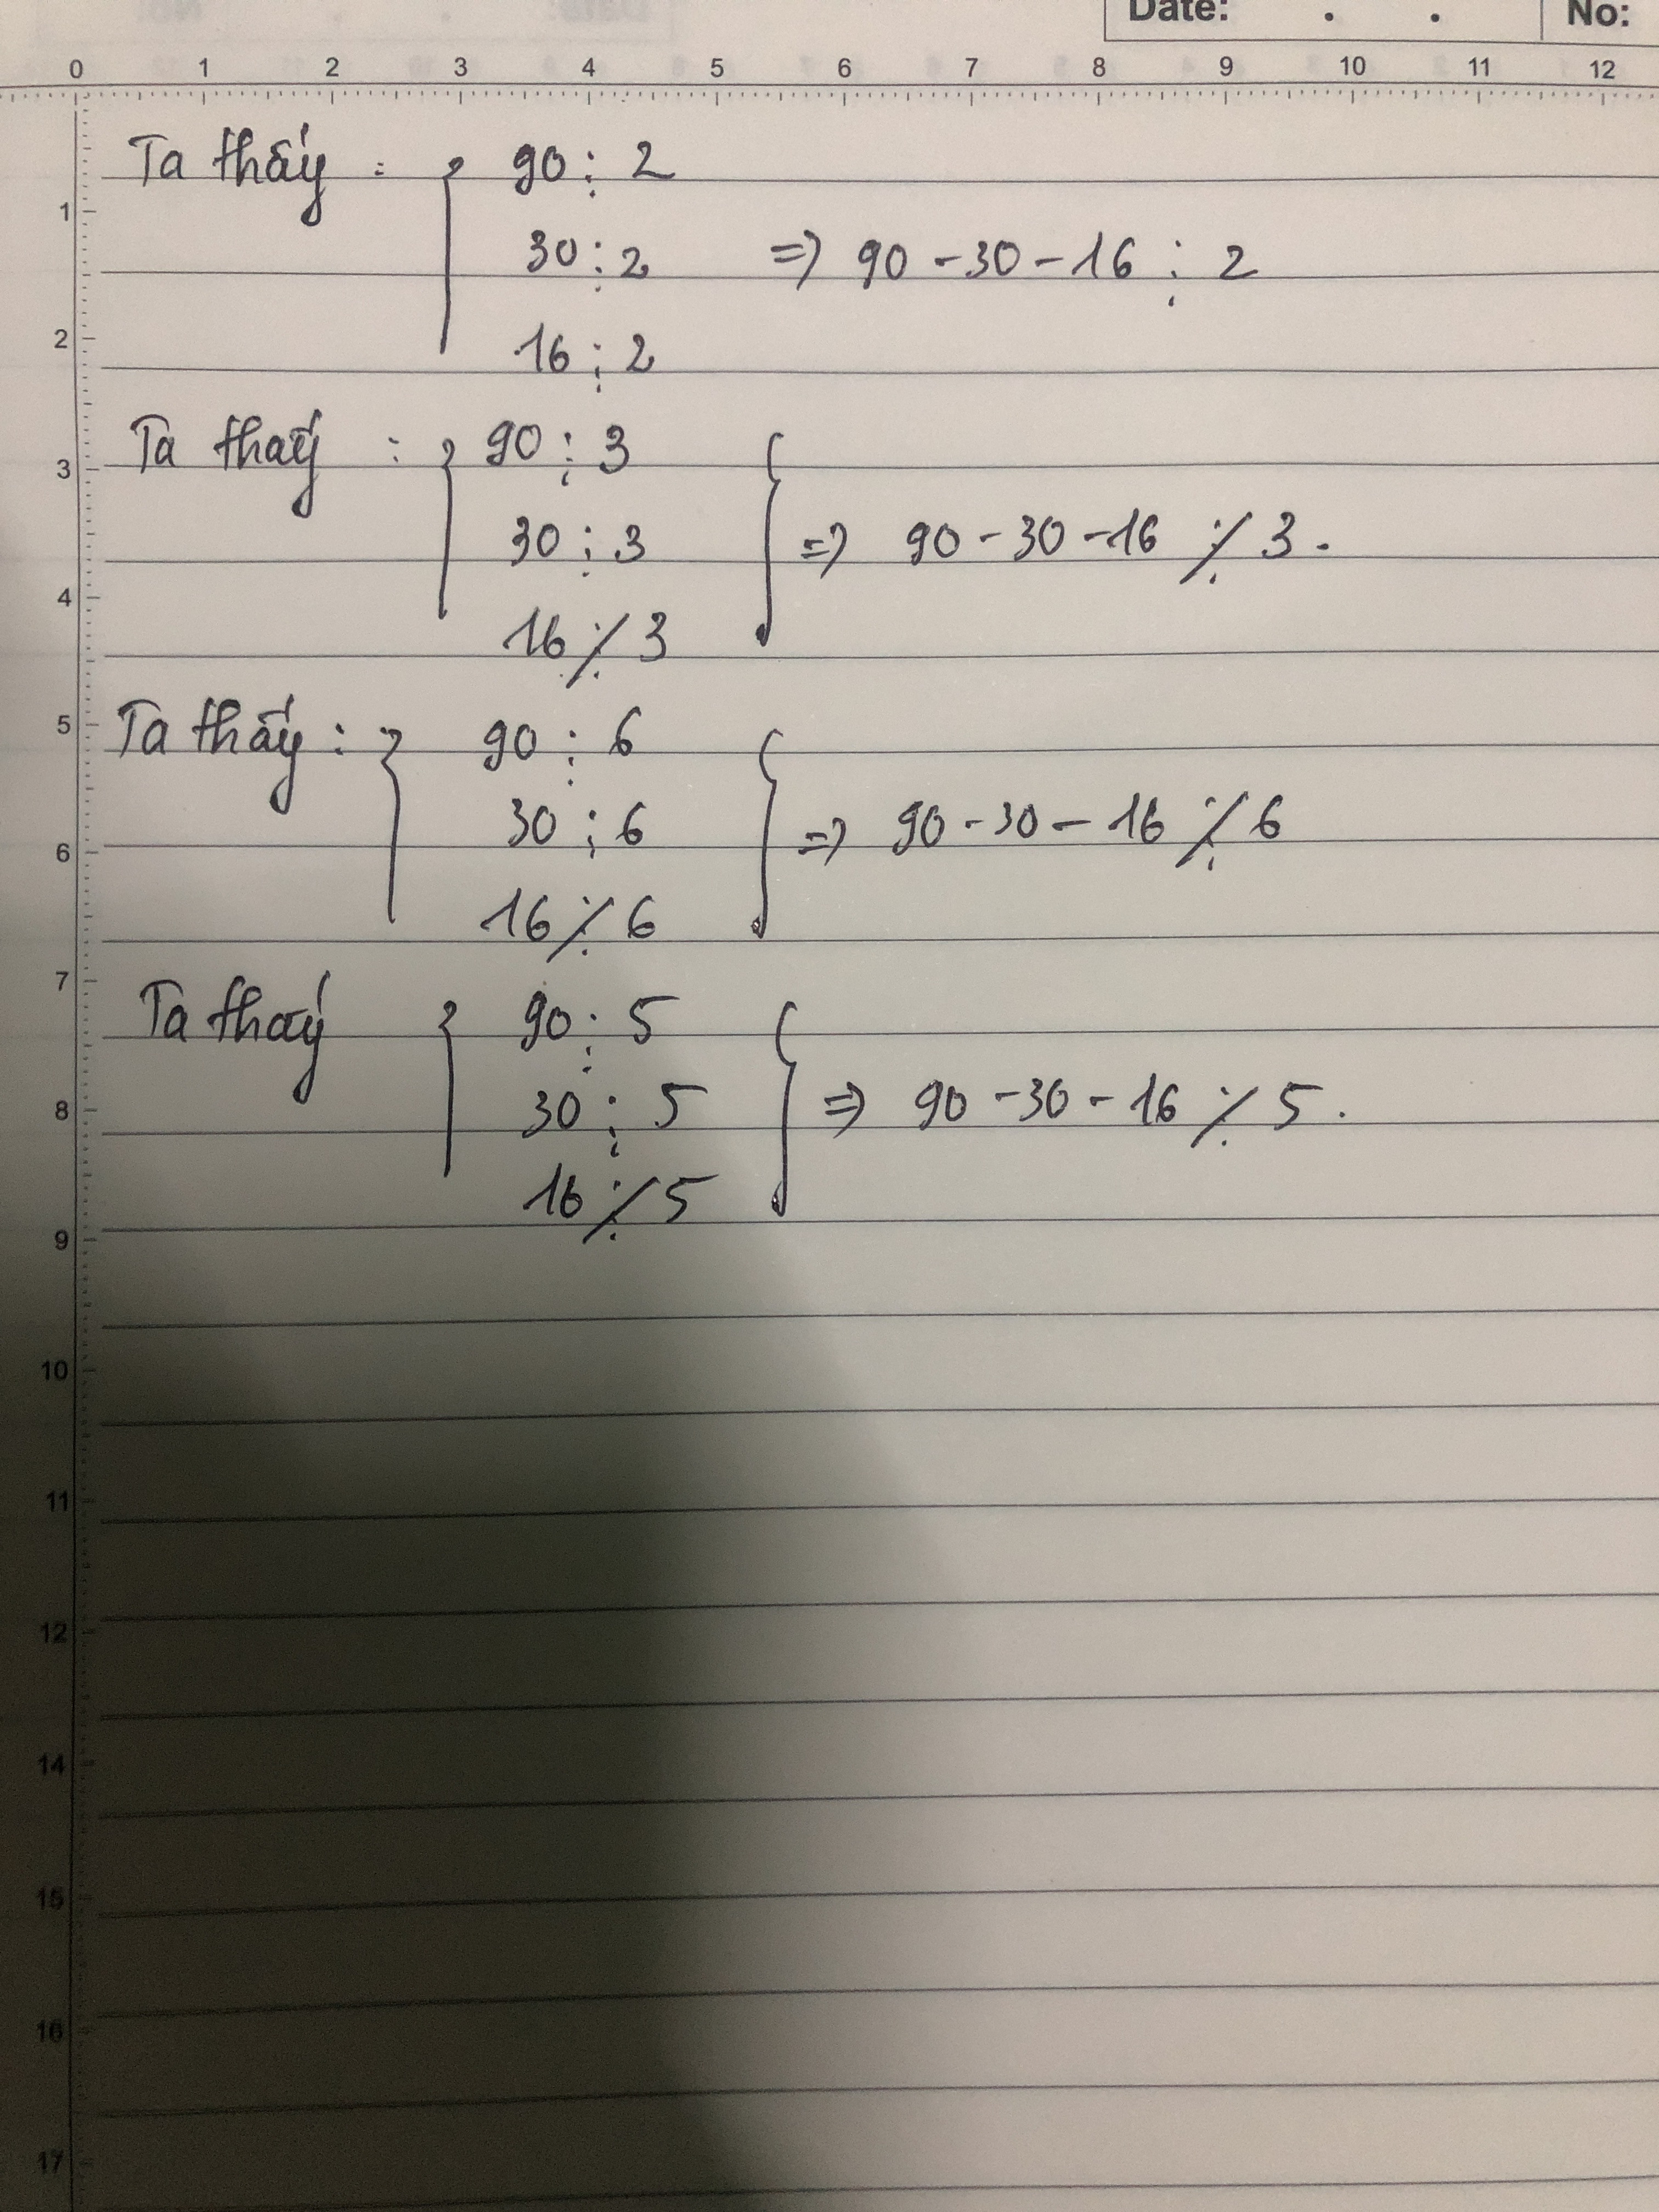 Date: . . No:
0 1 2 3 4 5 6 7 8 9 10 11 12
Ta thấy : { 90 ⋮ 2
30 ⋮ 2 => 90 - 30 - 16 ⋮ 2
16 ⋮ 2
Ta thấy : { 90 ⋮ 3
30 ⋮ 3 } => 90 - 30 - 16 ⋮̸ 3.
16 ⋮̸ 3
Ta thấy : { 90 ⋮ 6
30 ⋮ 6 } => 90 - 30 - 16 ⋮̸ 6
16 ⋮̸ 6
Ta thấy { 90 ⋮ 5
30 ⋮ 5 } => 90 - 30 - 16 ⋮̸ 5.
16 ⋮̸ 5
1
2
3
4
5
6
7
8
9
10
11
12
14
15
16
17